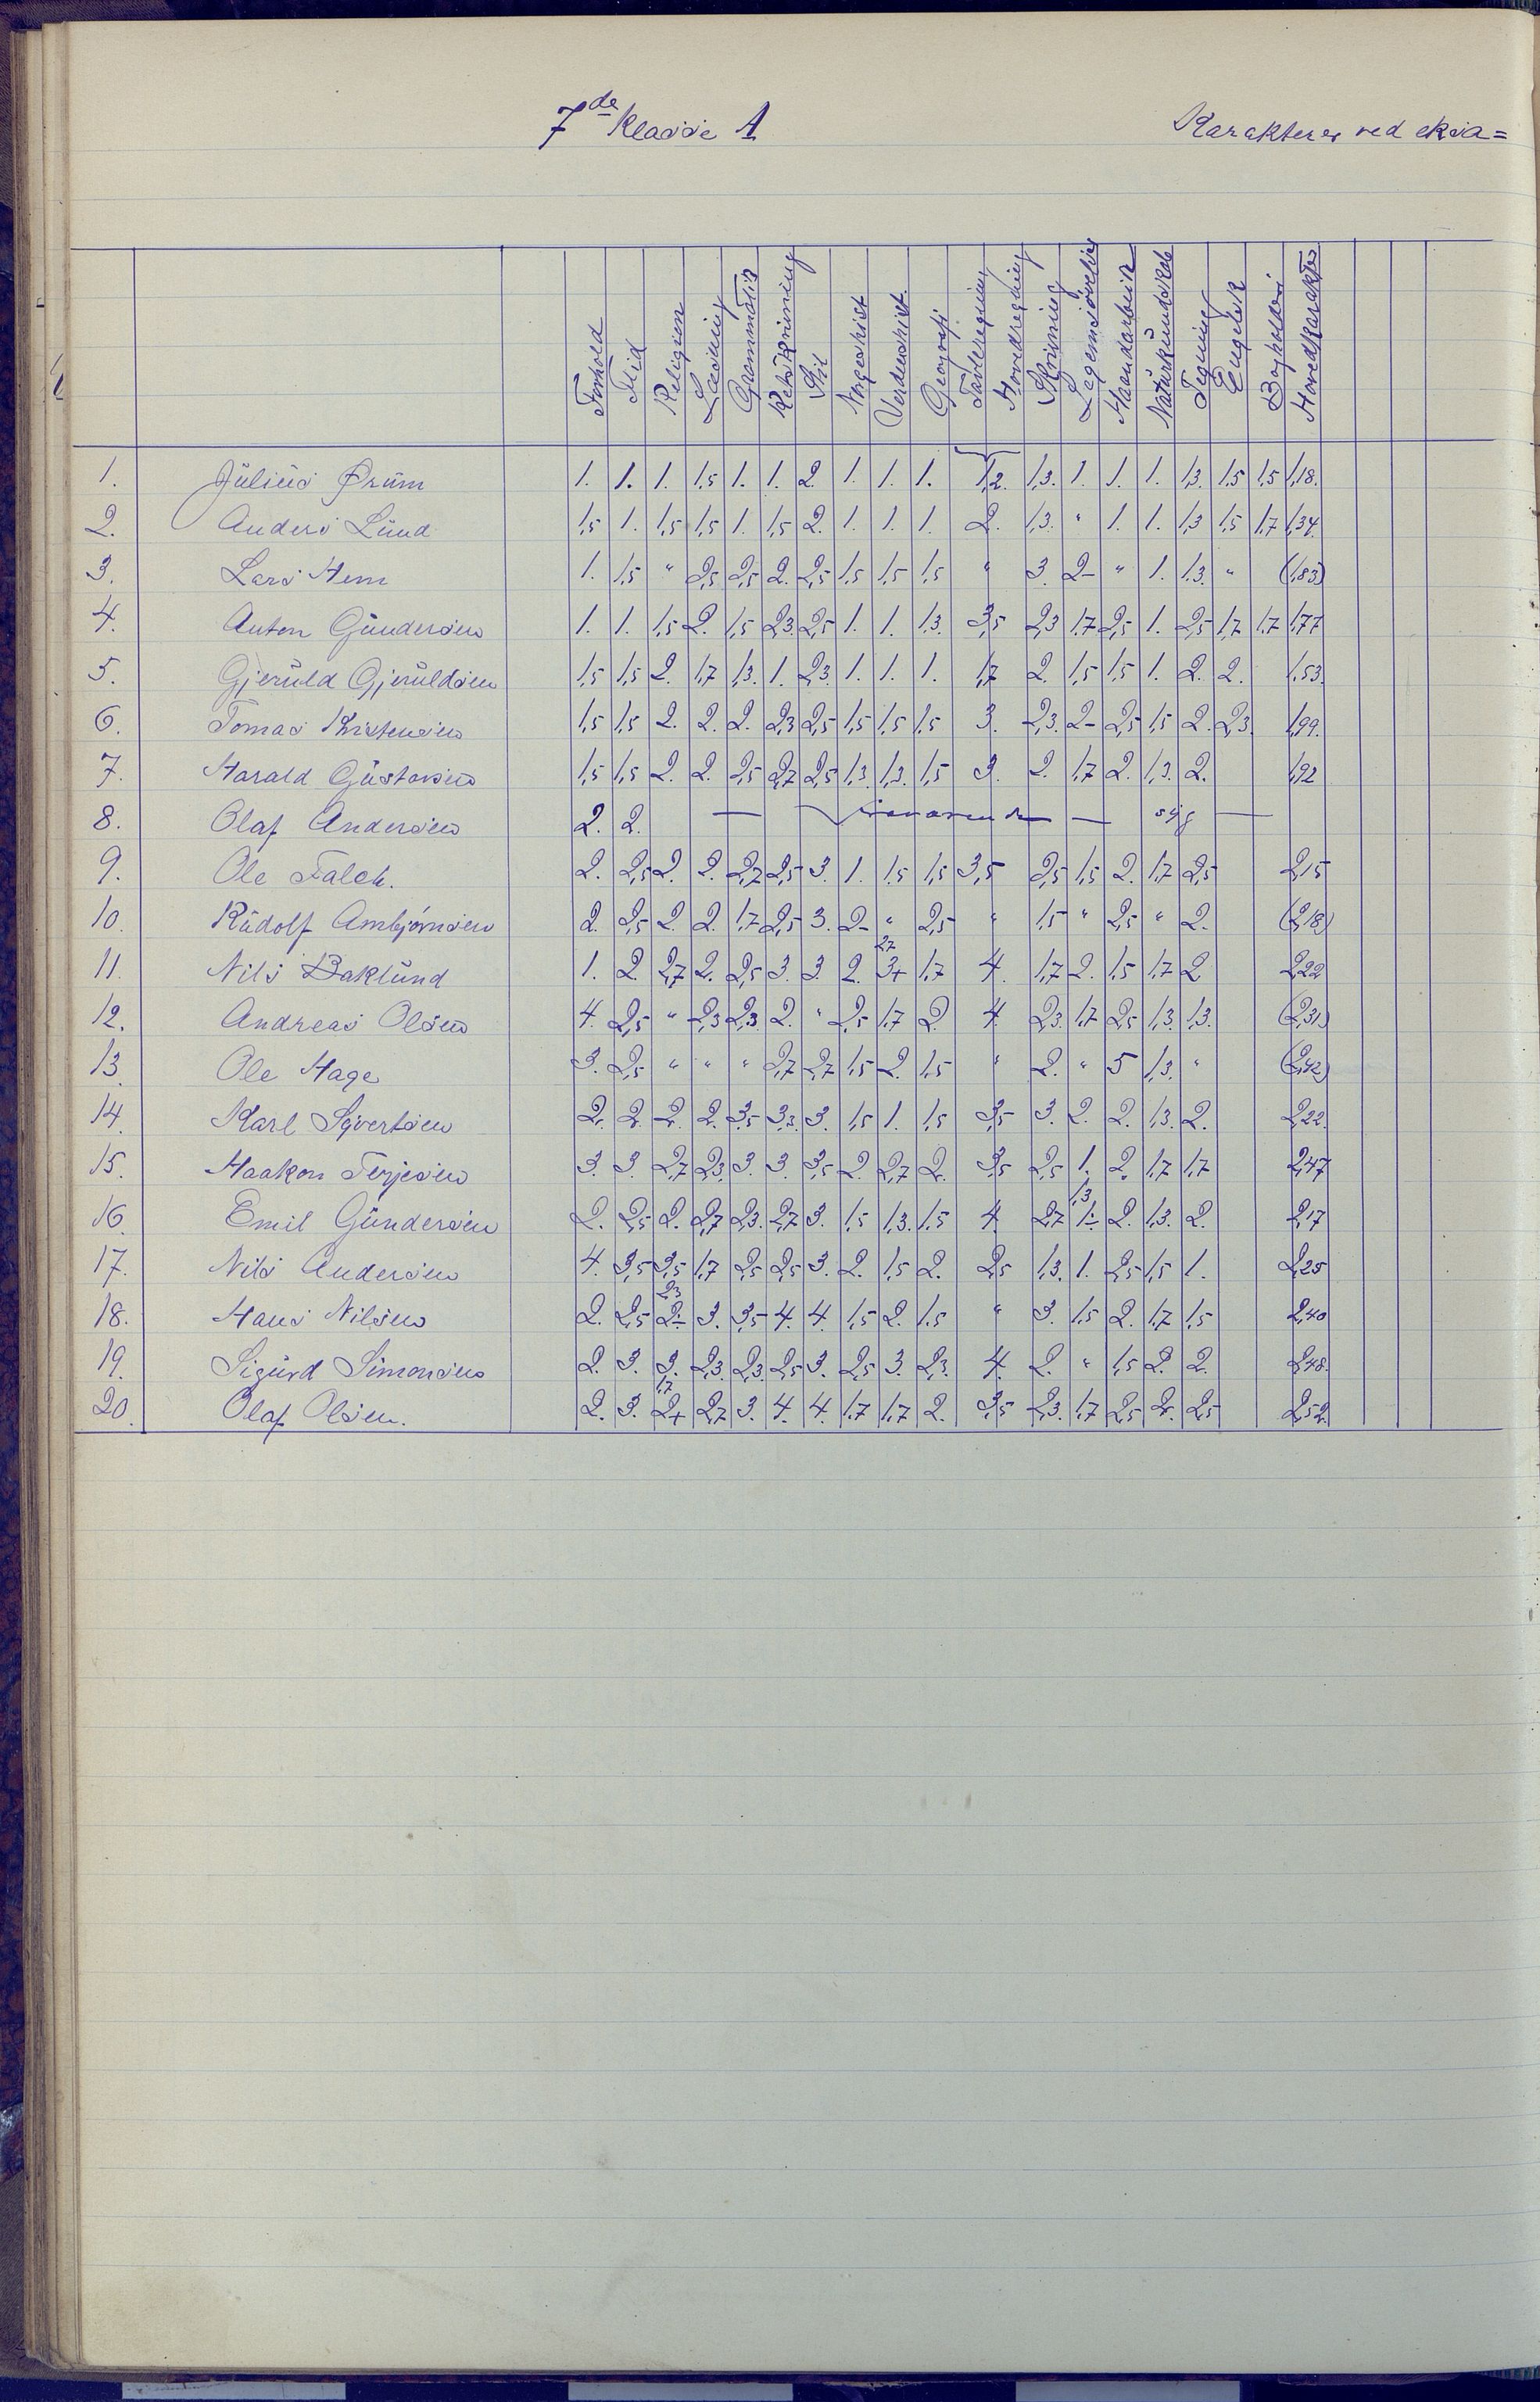 7de Klasse A Karakterer ved eksa=
Forhold Flid Religion Læsning Grammatik Retskrivning Stil Norgeshist Verdenshist. Geografi Tavleregning Hovedregning Skrivning Legemsøvelser Haandarbeide Naturkundskab Tegning Engelsk Bogholderi Hovedkarakter
1. Julius Ørum 1. 1. 1. 1,5 1. 1. 2 1. 1. 1. 1,2. 1,3. 1. 1. 1. 1,3. 1,5 1,5 1,18.
2. Anders Lund 1,5 1. 1,5 1,5 1. 1,5 2. 1. 1. 1. 2. 1,3. " 1. 1. 1,3 1,5 1,7 1,34.
3. Lars Hem 1. 1,5 " 2,5 2,5 2. 2,5 1,5 1,5 1,5 " 3. 2- " 1. 1,3. " (1,83)
4. Anton Gundersen 1. 1. 1,5 2. 1,5 2,3. 2,5 1. 1. 1,3. 3,5 2,3 1,7 2,5 1. 2,5 1,7 1,7 1,77
5. Gjeruld Gjeruldsen 1,5 1,5 2. 1,7 1,3. 1. 2,3. 1. 1. 1. 1,7 2. 1,5 1,5 1. 2. 2. 1,53.
6. Tomas Kristensen 1,5 1,5 2. 2. 2. 2,3 2,5 1,5 1,5 1,5 3. 2,3. 2- 2,5 1,5 2. 2,3. 1,99.
7. Harald Gustavsen 1,5 1,5 2. 2. 2,5 2,7 2,5 1,3. 1,3. 1,5 3. 2. 1,7 2. 1,3. 2. 1,92
8. Olaf Andersen 2. 2. — — sig —
9. Ole Falch. 2. 2,5 2. 2. 2,7 2,5 3. 1. 1,5 1,5 3,5 2,5 1,5 2. 1,7 2,5 2,15
10. Rudolf Ambjørnsen 2. 2,5 2. 2. 1,7 2,5 3. 2- " 2,5 " 1,5 " 2,5 " 2. (2,18)
11. Nils Baklund 1. 2. 2,7 2. 2,5 3. 3. 2. 2,7 3+ 1,7 4. 1,7 2. 1,5 1,7 2 2,22
12. Andreas Olsen 4. 2,5 " 2,3 2,3. 2. " 2,5 1,7 2. 4. 2,3. 1,7 2,5 1,3. 1,3. (2,31)
13. Ole Hage 3. 2,5 " " " 2,7 2,7 1,5 2. 1,5 " 2. " 5 1,3. " (2,42)
14. Karl Syvertsen 2. 2. 2. 2. 3,5 3,3. 3. 1,5 1. 1,5 3,5 3. 2. 2. 1,3. 2. 2,22.
15. Haakon Terjesen 3. 3. 2,7 2,3. 3. 3. 3,5 2. 2,7 2. 3,5 2,5 1. 2. 1,7 1,7 2,47
16. Emil Gundersen 2. 2,5 2. 2,7 2,3. 2,7 3. 1,5 1,3. 1,5 4 2,7 1,3 1- 2. 1,3. 2. 2,17
17. Nils Andersen 4. 3,5 3,5 1,7 2,5 2,5 3. 2. 1,5 2. 2,5 1,3. 1. 2,5 1,5 1. 2,25
18. Hans Nilsen 2. 2,5 2,3 2- 3. 3,5 4. 4. 1,5 2. 1,5 " 3. 1,5 2. 1,7 1,5 2,40
19. Sigurd Simonsen 2. 3. 3. 2,3. 2,3. 2,5 3. 2,5 3. 2,3. 4. 2. " 1,5 2. 2. 2,48.
20. Olaf Olsen. 2. 3. 1,7 2+ 2,7 3. 4. 4. 1,7 1,7 2. 3,5 2,3. 1,7 2,5 2. 2,5 2,52.